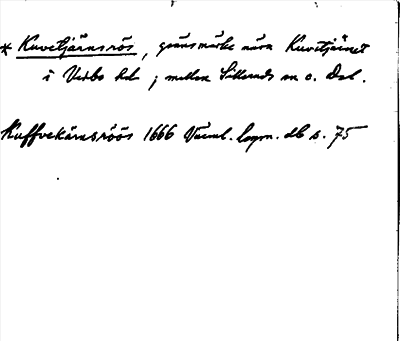 * Kuvetjärnsrös, gränsmärke nära Kuvetjärnet
i Vedbo hd ; mellan Sillerud sn o. Dal.
Kuffvekärnsröös 1666 Värml. lagm. db s. 75